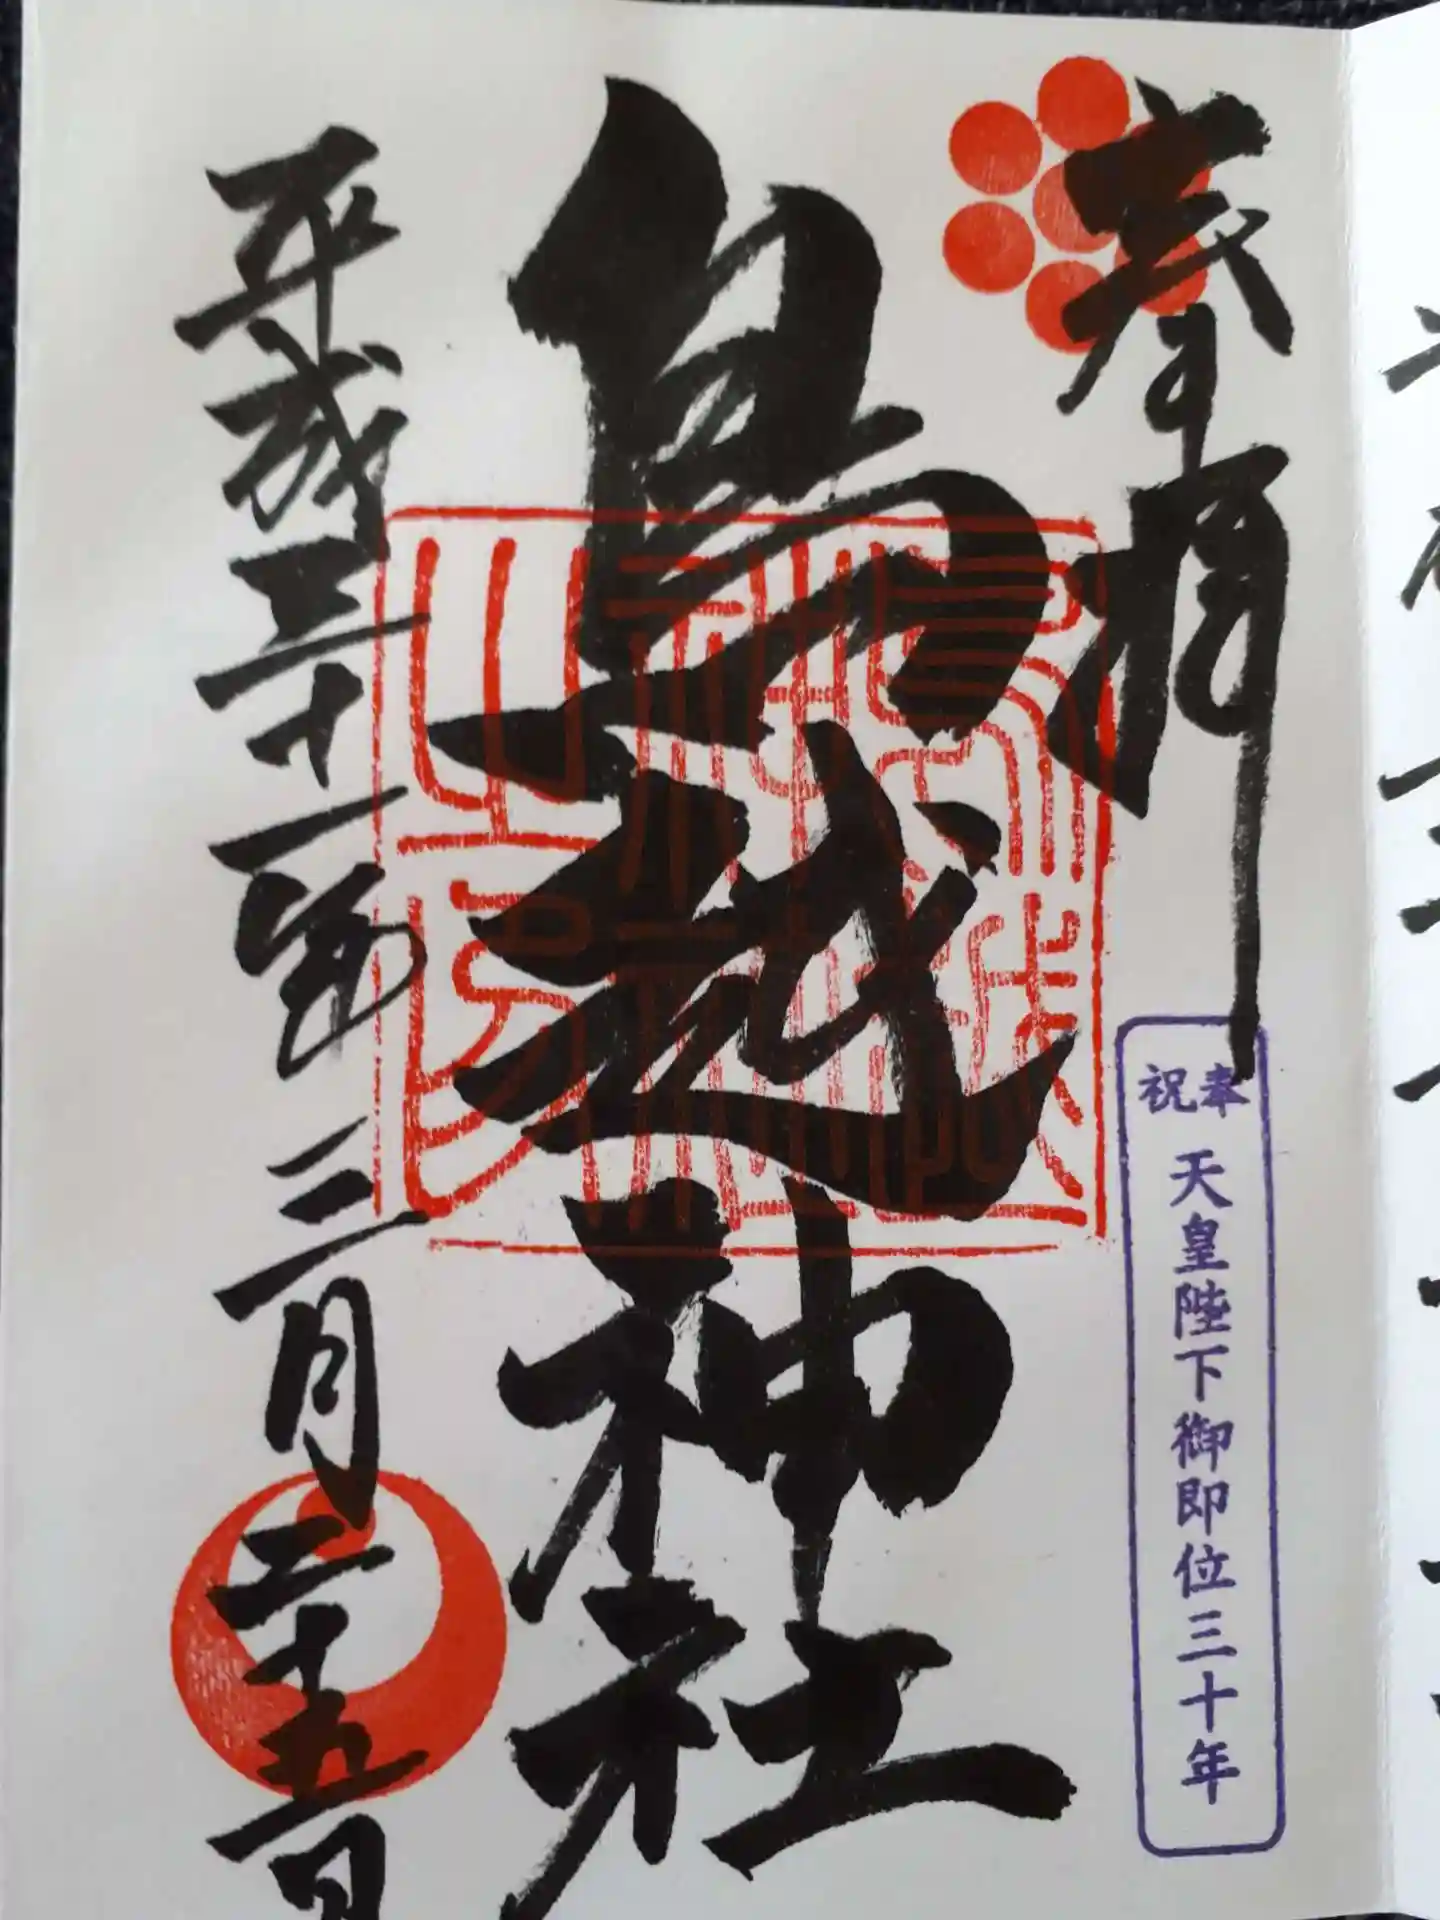 奉拝
奉祝
天皇陛下御即位三十年
鳥越神社
平成三十一年三月二十九日